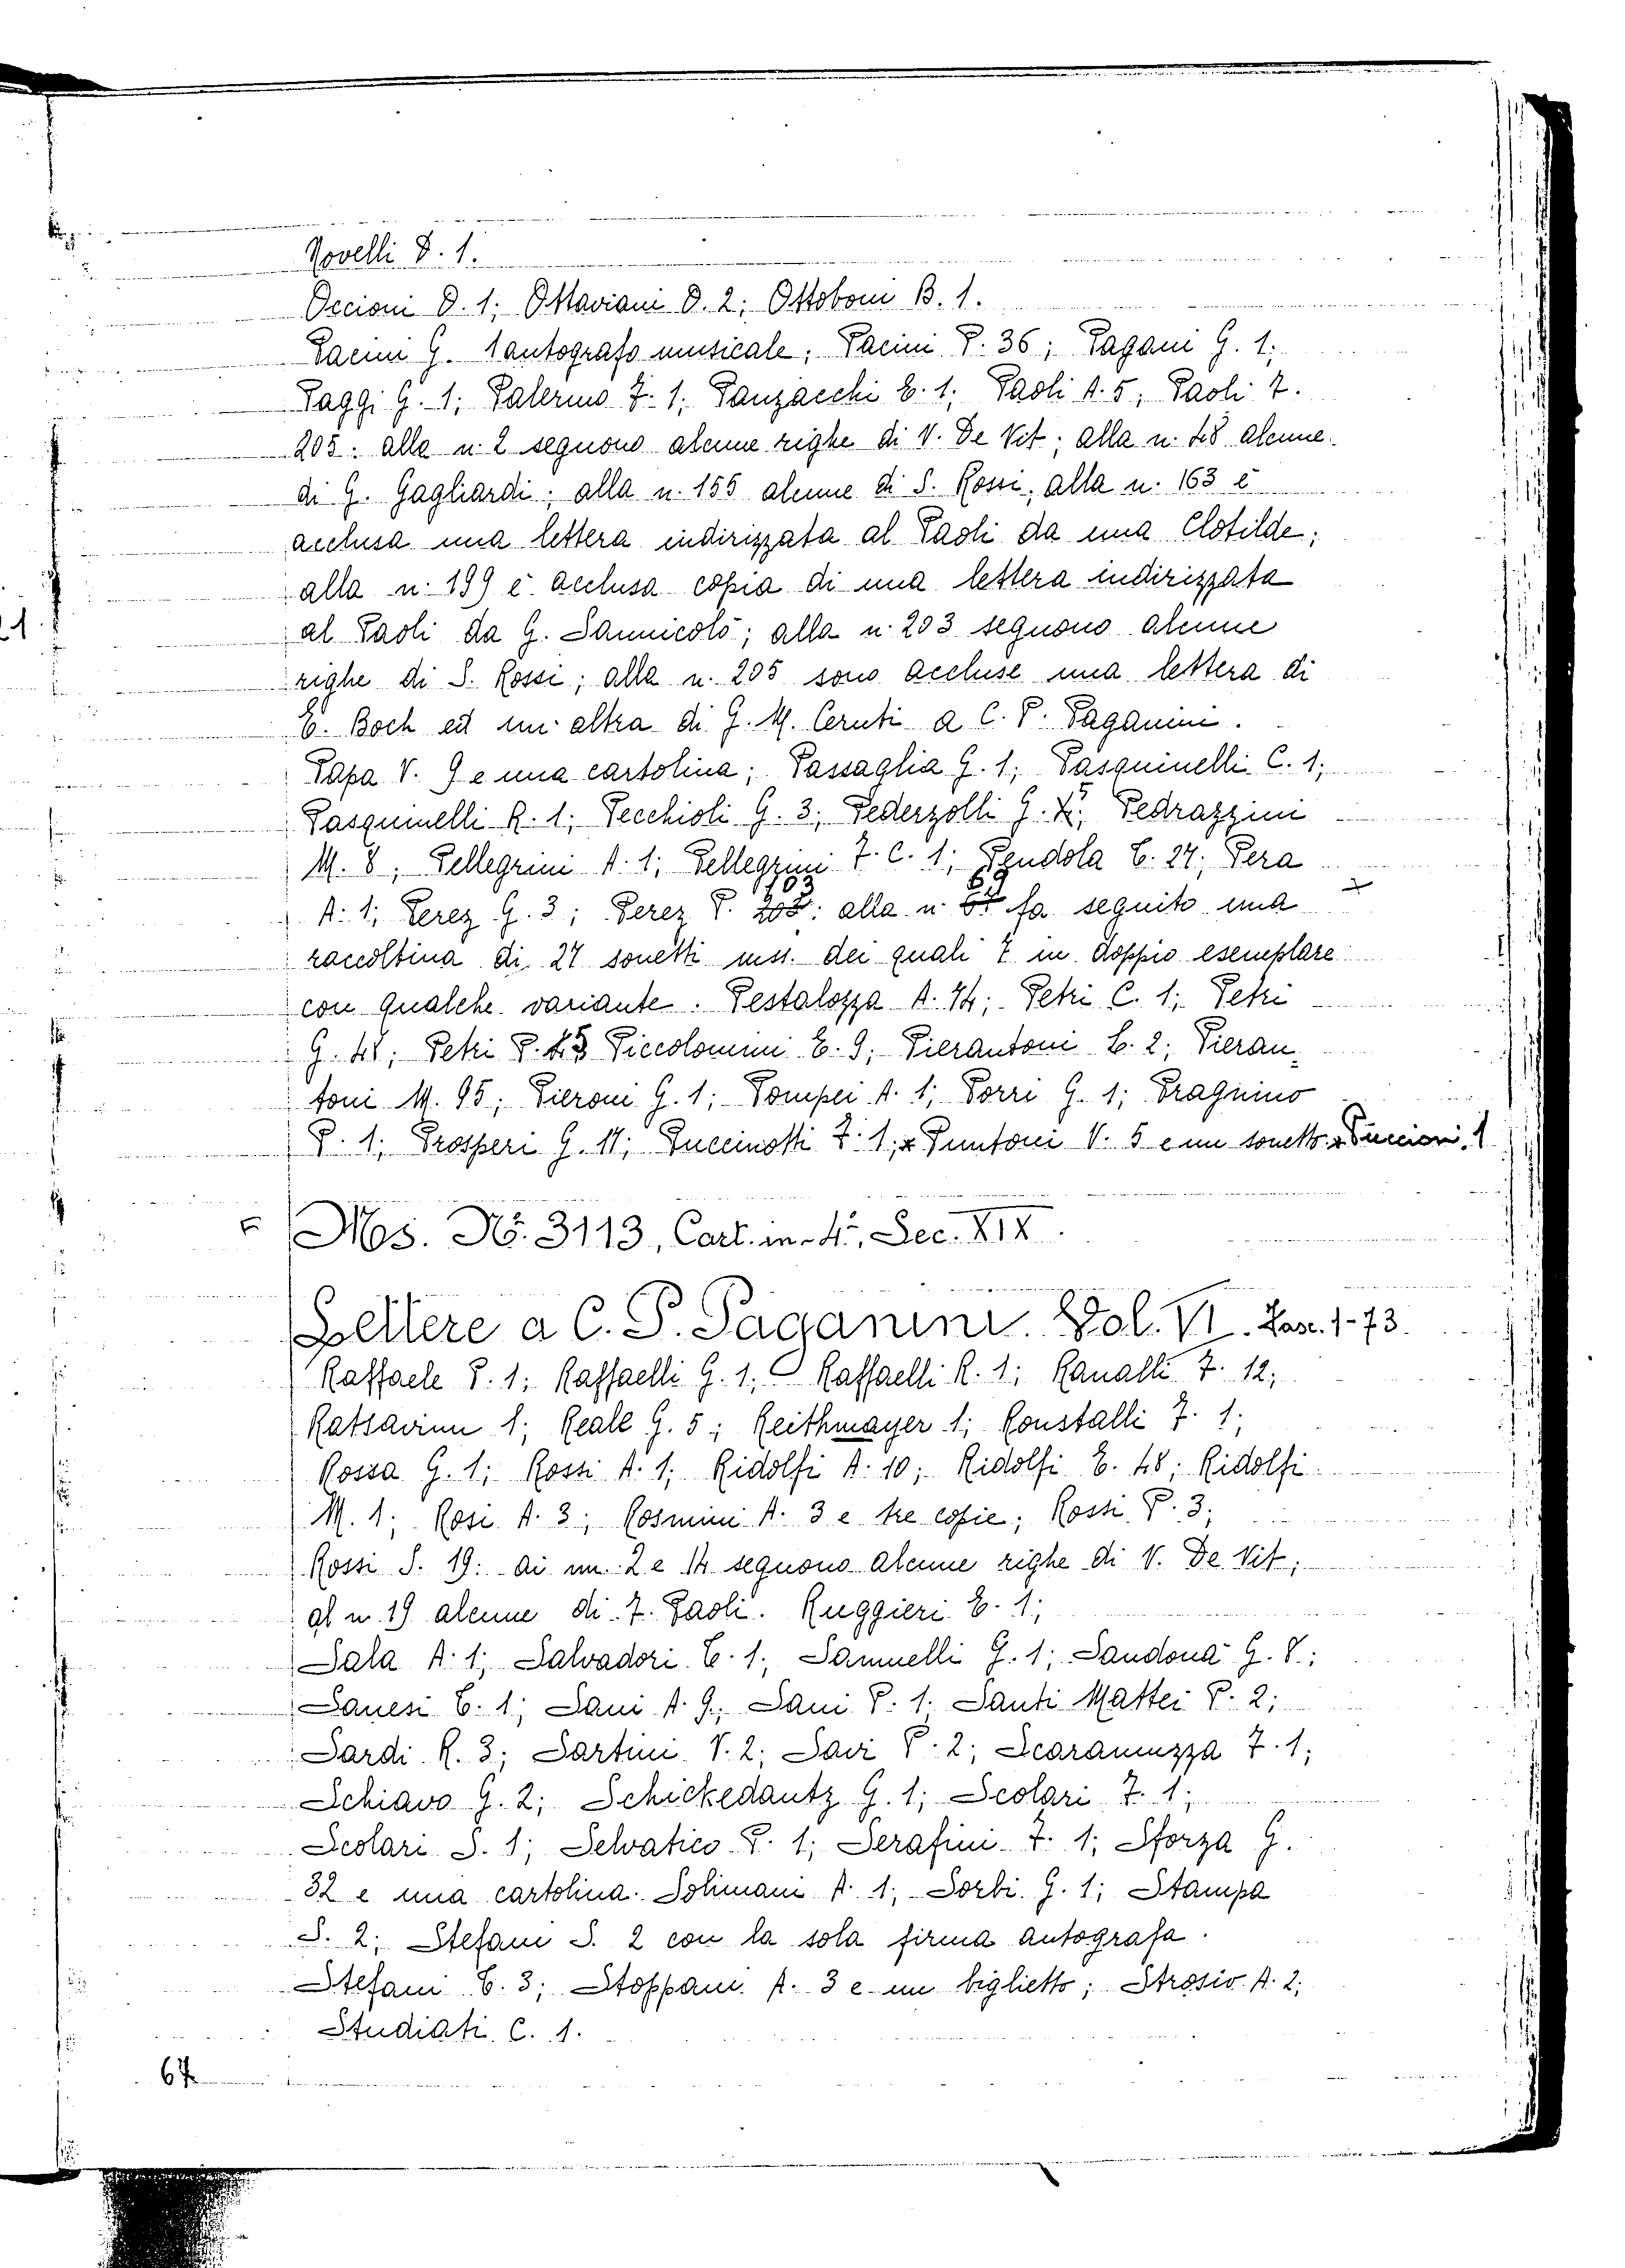 Novelli D. 1.
Occioni O. 1; Ottaviani O. 2; Ottoboni B. 1.
Pacini G. 1 autografo musicale; Pacini P. 36; Pagani G. 1;
Paggi G. 1; Palermo F. 1; Panzacchi E. 1; Paoli A. 5; Paoli F.
205: alla n. 2 seguono alcune righe di V. De Vit; alla n. 48 alcune
di G. Gagliardi; alla n. 155 alcune di S. Rossi; alla n. 163 è
acclusa una lettera indirizzata al Paoli da una Clotilde;
alla n. 199 è acclusa copia di una lettera indirizzata
al Paoli da G. Sannicolò; alla n. 203 seguono alcune
righe di S. Rossi; alla n. 205 sono accluse una lettera di
E. Boch ed un'altra di G. M. Ceruti a C. P. Paganini.
Papa V. 9 e una cartolina; Passaglia G. 1; Pasquinelli C. 1;
Pasquinelli R. 1; Pecchioli G. 3; Pederzolli G. 5; Pedrazzini
M. 8; Pellegrini A. 1; Pellegrini F. C. 1; Pendola E. 27; Pera
A. 1; Perez G. 3; Perez P. 103: alla n. 69 fa seguito una
raccoltina di 27 sonetti mss. dei quali 7 in doppio esemplare
con qualche variante. Pestalozza A. 74; Petri C. 1; Petri
G. 41; Petri P. 45 Piccolomini E. 9; Pierantoni C. 2; Pieran-
toni M. 95; Pieroni G. 1; Pompei A. 1; Porri G. 1; Pragnino
P. 1; Prosperi G. 11; Puccinotti F. 1; x Puntoni V. 5 e un sonetto x Puccioni, 1
Mos. No. 3113, Cart. in-4°, Sec. XIX.
Lettere a C. P. Paganini. Vol. VI. Fasc. 1-73.
Raffaele P. 1; Raffaelli G. 1; Raffaelli R. 1; Ranalli F. 12;
Katsavinn 1; Reale G. 5; Reithmayer 1; Ronstalli F. 1;
Rossa G. 1; Rossi A. 1; Ridolfi A. 10; Ridolfi E. 48; Ridolfi
M. 1; Rosi A. 3; Rosmini A. 3 e tre copie; Rossi P. 3;
Rossi S. 19: ai nn. 2 e 14 seguono alcune righe di V. De Vit;
al n. 19 alcune di F. Paoli. Ruggieri E. 1;
Sala A. 1; Salvadori E. 1; Samuelli G. 1; Sandonà G. 8;
Sanesi E. 1; Sani A. 9; Sani P. 1 Santi Mattei P. 2;
Sardi R. 3; Sartini V. 2; Savi P. 2; Scaramuzza F. 1;
Schiavo G. 2; Schickedantz G. 1; Scolari F. 1;
Scolari S. 1; Selvatico P. 1; Serafini F. 1; Sforza G.
32 e una cartolina. Solimani A. 1; Sorbi G. 1; Stampa
S. 2; Stefani S. 2 con la sola firma autografa.
Stefani E. 3; Stoppani A. 3 e un biglietto; Strosio A. 2;
Studiati C. 1.
67